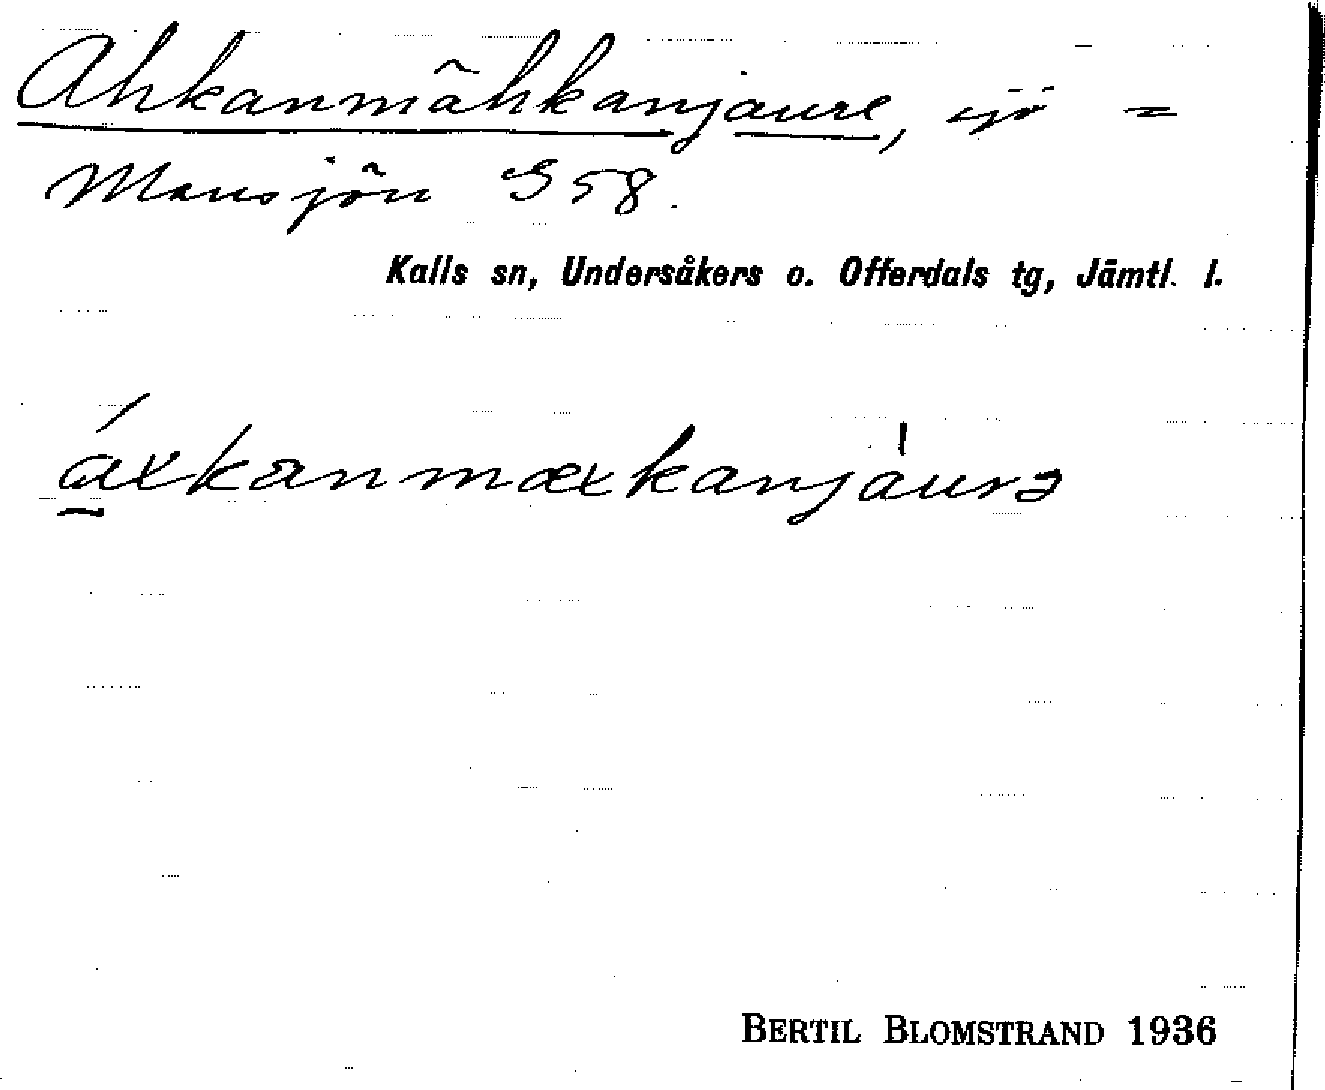 Ahkanmähkanjaure, sjö =
Mansjön G 58.
Kalls sn, Undersåkers o. Offerdals tg, Jämtl. l.
áxkanmæxkanjàurə
BERTIL BLOMSTRAND 1936